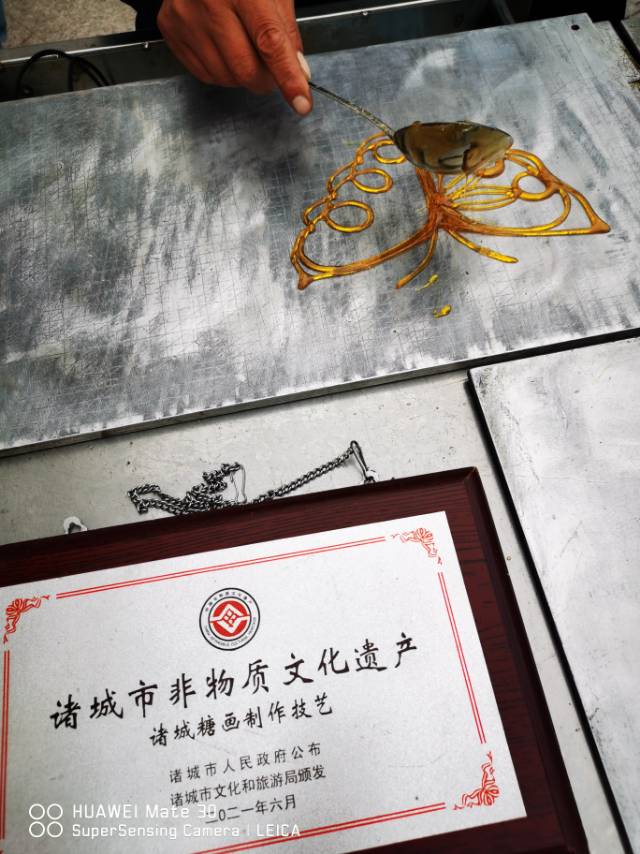 诸城市非物质文化遗产
诸城糖画制作技艺
诸城市人民政府公布
诸城市文化和旅游局颁发
二〇二一年六月
HUAWEI Mate 30
SuperSensing Camera | LEICA